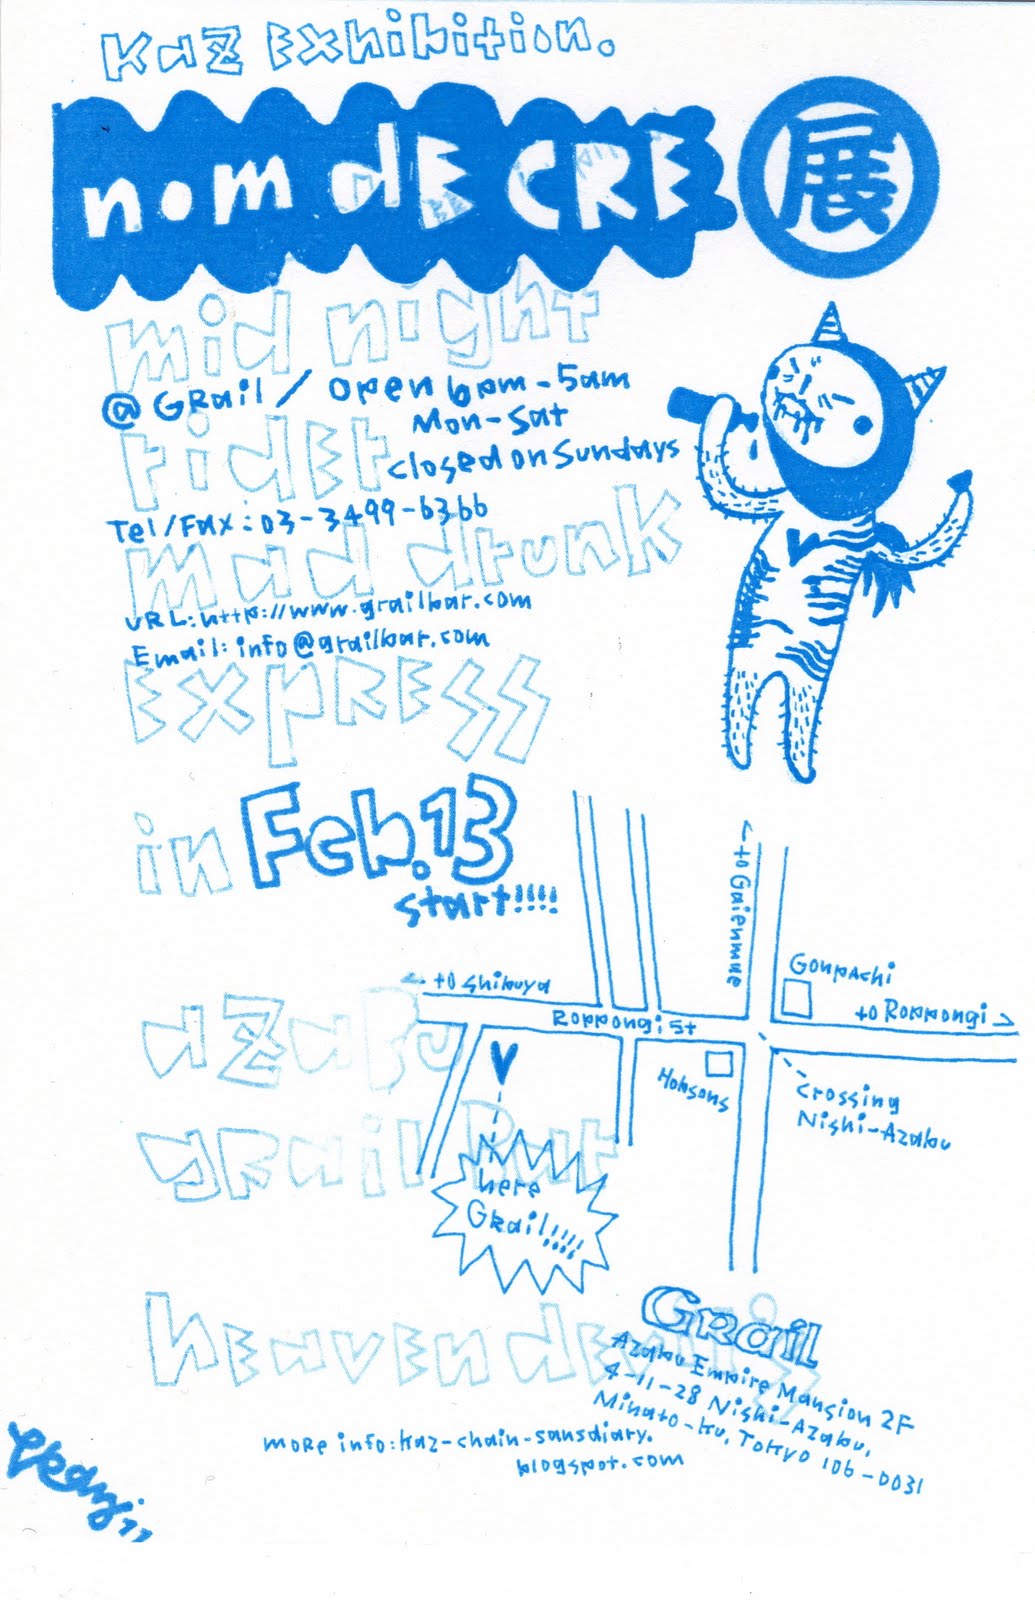 KaZ Exhibition.
nom dE CRE 展
mid night
@ GRail / open 6pm-5am
Mon-Sat
RidER
closed on Sundays
Tel/Fax:03-3499-6366
mad drunk
URL:http://www.grailbar.com
Email: info@grailbar.com
ExpRESS
in Feb.13
start!!!!
← to Gaienmae
Gonpachi
← to Shibuya
to Roppongi →
Roppongi St
azabu
Hobsons
crossing
Nishi-Azabu
gRail Bar
here
Grail!!!!
GRaiL
heaven
Azabu Empire Mansion 2F
4-11-28 Nishi-Azabu,
Minato-ku, Tokyo 106-0031
more info:kaz-chain-sansdiary.
blogspot.com